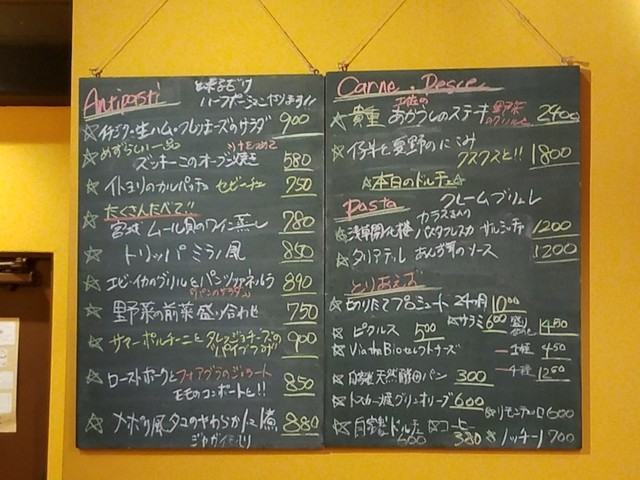 Antipasti
ハーフポーションも作ります!!
☆イチジク・生ハム・フレッシュチーズのサラダ 900
めずらしい一品
☆ズッキーニのオーブン焼き 580
☆イトヨリのカルパッチョ セビーチェ 750
たくさんたべて!!
☆宮城ムール貝のワイン蒸し 780
☆トリッパ ミラノ風 850
☆エビ・イカのグリルとパンツァネッラ 890
(パンのサラダ)
☆野菜の前菜盛り合わせ 750
☆サマーポルチーニとタレッジョチーズの 900
☆ローストポークとフォアグラのジェラート 850
モモのコンポートと!!
☆ナポリ風タコのやわらかトマト煮 880
ジャガイモ入り
Carne . Pesce
☆貴重 土佐のあかうしのステーキ 野菜のグリルと 2400
☆仔羊と夏野菜のにこみ
クスクスと!! 1800
☆本日のドルチェ☆
クレームブリュレ
Pasta
☆浅草開化楼 カラスさん パスタフレスカ サルシッチャ 1200
☆タリアテッレ あんず茸のソース 1200
とりあえず
☆切りたてプロシュート 24ヶ月 1000
☆サラミ 600 盛り合わせ 1450
☆ピクルス 500
☆Via the Bioセレクトチーズ 一種 450
☆自家製天然酵母パン 300 三種 1250
☆トスカーナ風グリーンオリーブ 600
☆リモンチェッロ 600
☆自家製ドルチェ 600 ☆コーヒー 380 ☆ノッチーノ 700